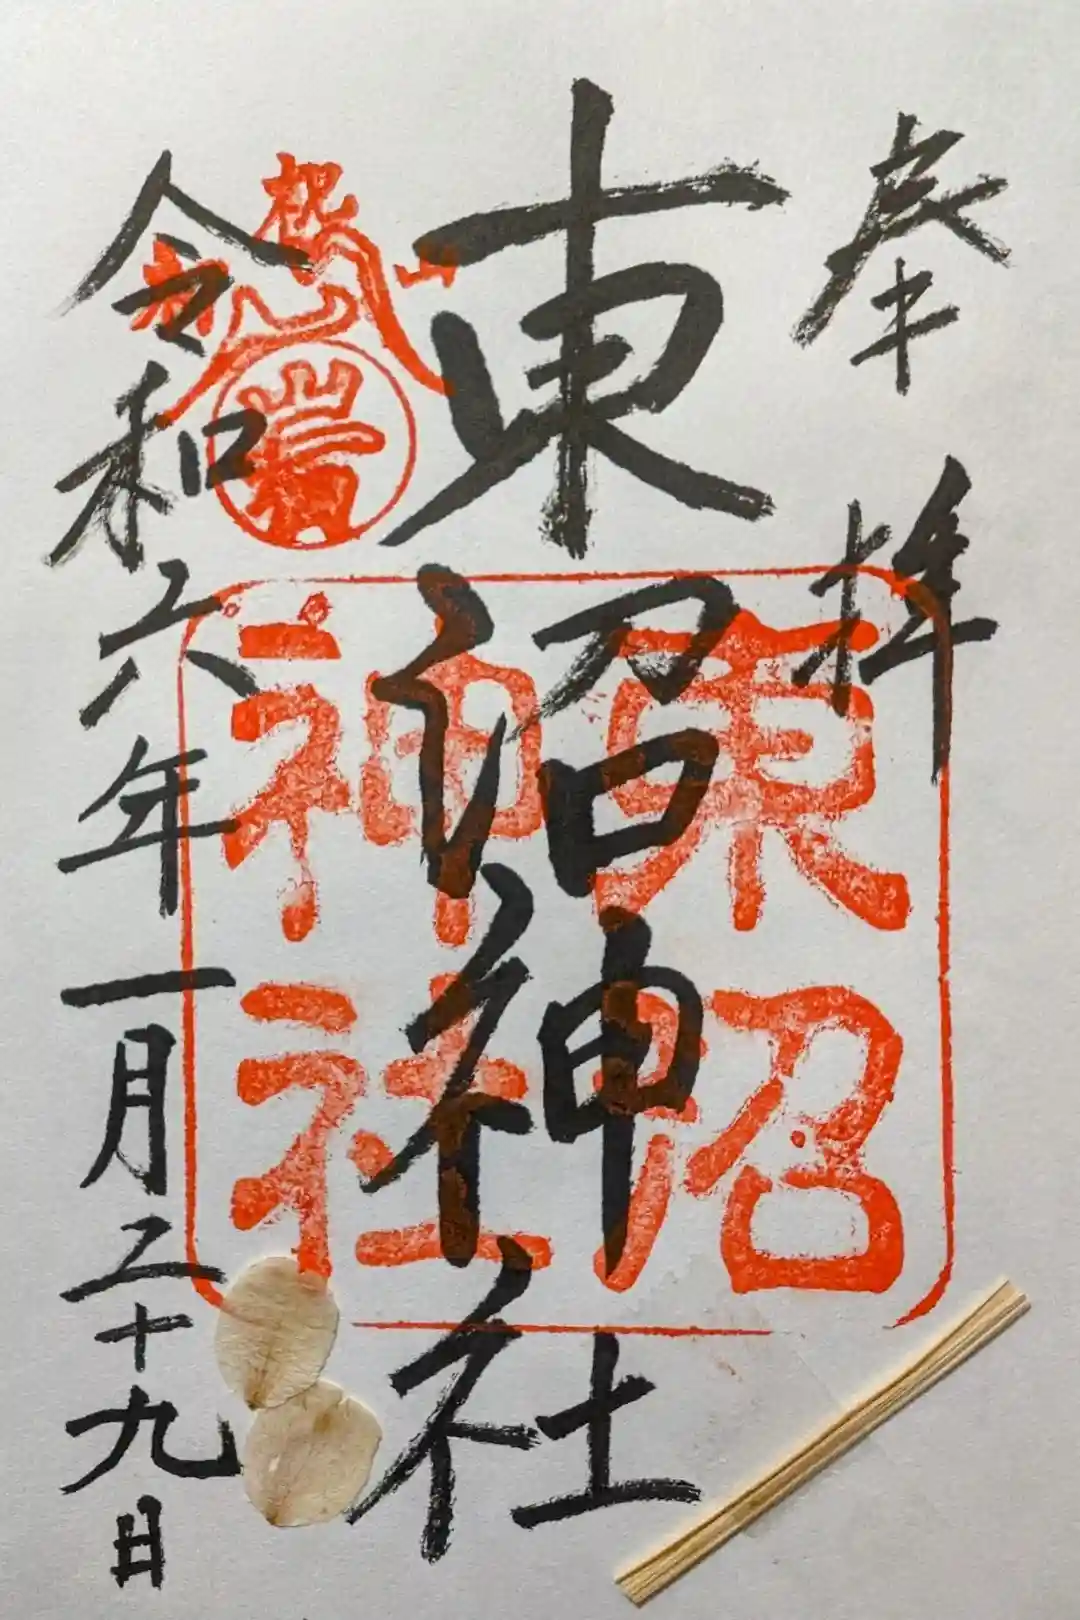 奉拝
東沼神社
東沼
神社
令和六年一月二十九日